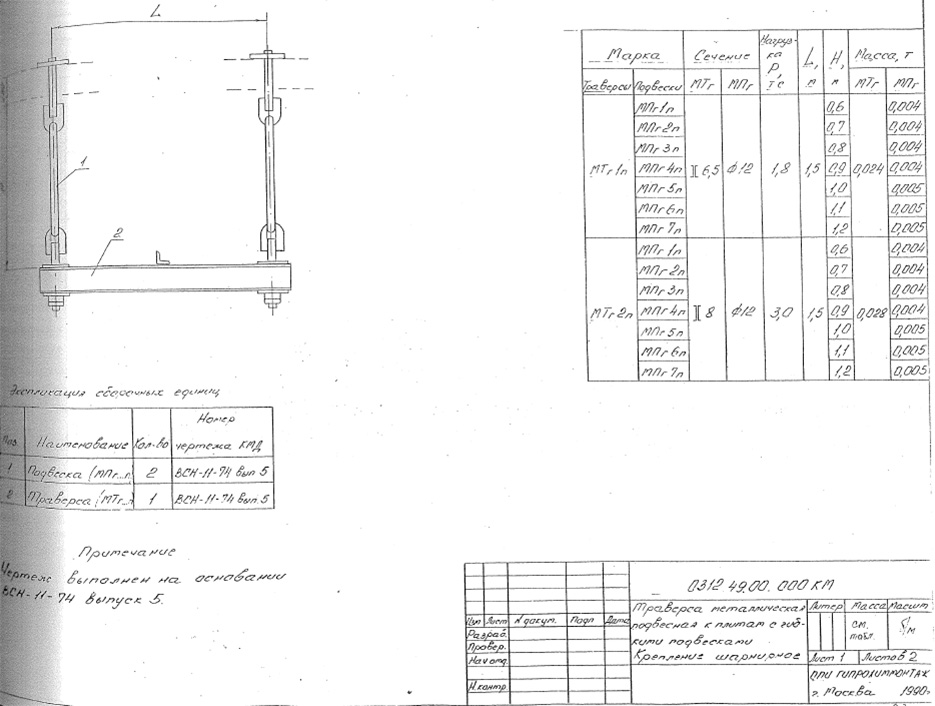 L
1
2
Марка Сечение Нагрузка P, тс L, м H, м Масса, т
Траверсы Подвески МТг МПг МТг МПг
МПг1п 0,6 0,004
МПг2п 0,7 0,004
МПг3п 0,8 0,004
МТг1п МПг4п ][ 6,5 ф12 1,8 1,5 0,9 0,024 0,004
МПг5п 1,0 0,005
МПг6п 1,1 0,005
МПг7п 1,2 0,005
МПг1п 0,6 0,004
МПг2п 0,7 0,004
МПг3п 0,8 0,004
МТг2п МПг4п ][ 8 ф12 3,0 1,5 0,9 0,028 0,004
МПг5п 1,0 0,005
МПг6п 1,1 0,005
МПг7п 1,2 0,005
Экспликация сборочных единиц
Поз. Наименование Кол-во Номер чертежа КМД
1 Подвеска (МПг...п) 2 ВСН-11-74 вып 5
2 Траверса (МТг...п) 1 ВСН-11-74 вып.5
Примечание
Чертеж выполнен на основании
ВСН-11-74 выпуск 5.
0312.49.00.000 КМ
Изм Лист N докум. Подп Дата
Разраб.
Провер.
Нач отд.
Н.контр
Траверса металлическая
подвесная к плитам с гиб-
кими подвесками
Крепление шарнирное
Литер Масса Масшт
см. табл. б/м
Лист 1 Листов 2
ППИ ГИПРОХИММОНТАЖ
г. Москва 1990г